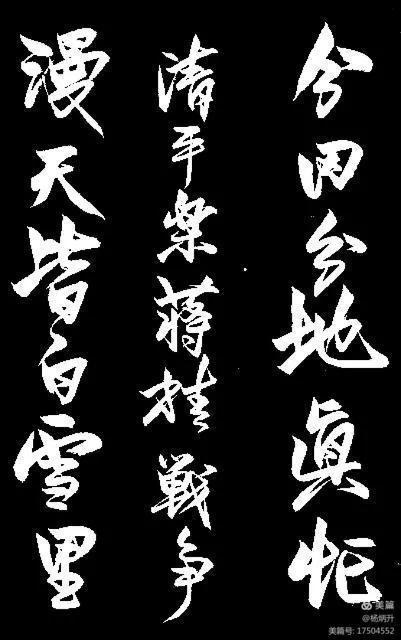 分田分地眞忙
清平樂蔣桂戰争
漫天皆白雪里
美篇
@杨炳升
美篇号: 17504552